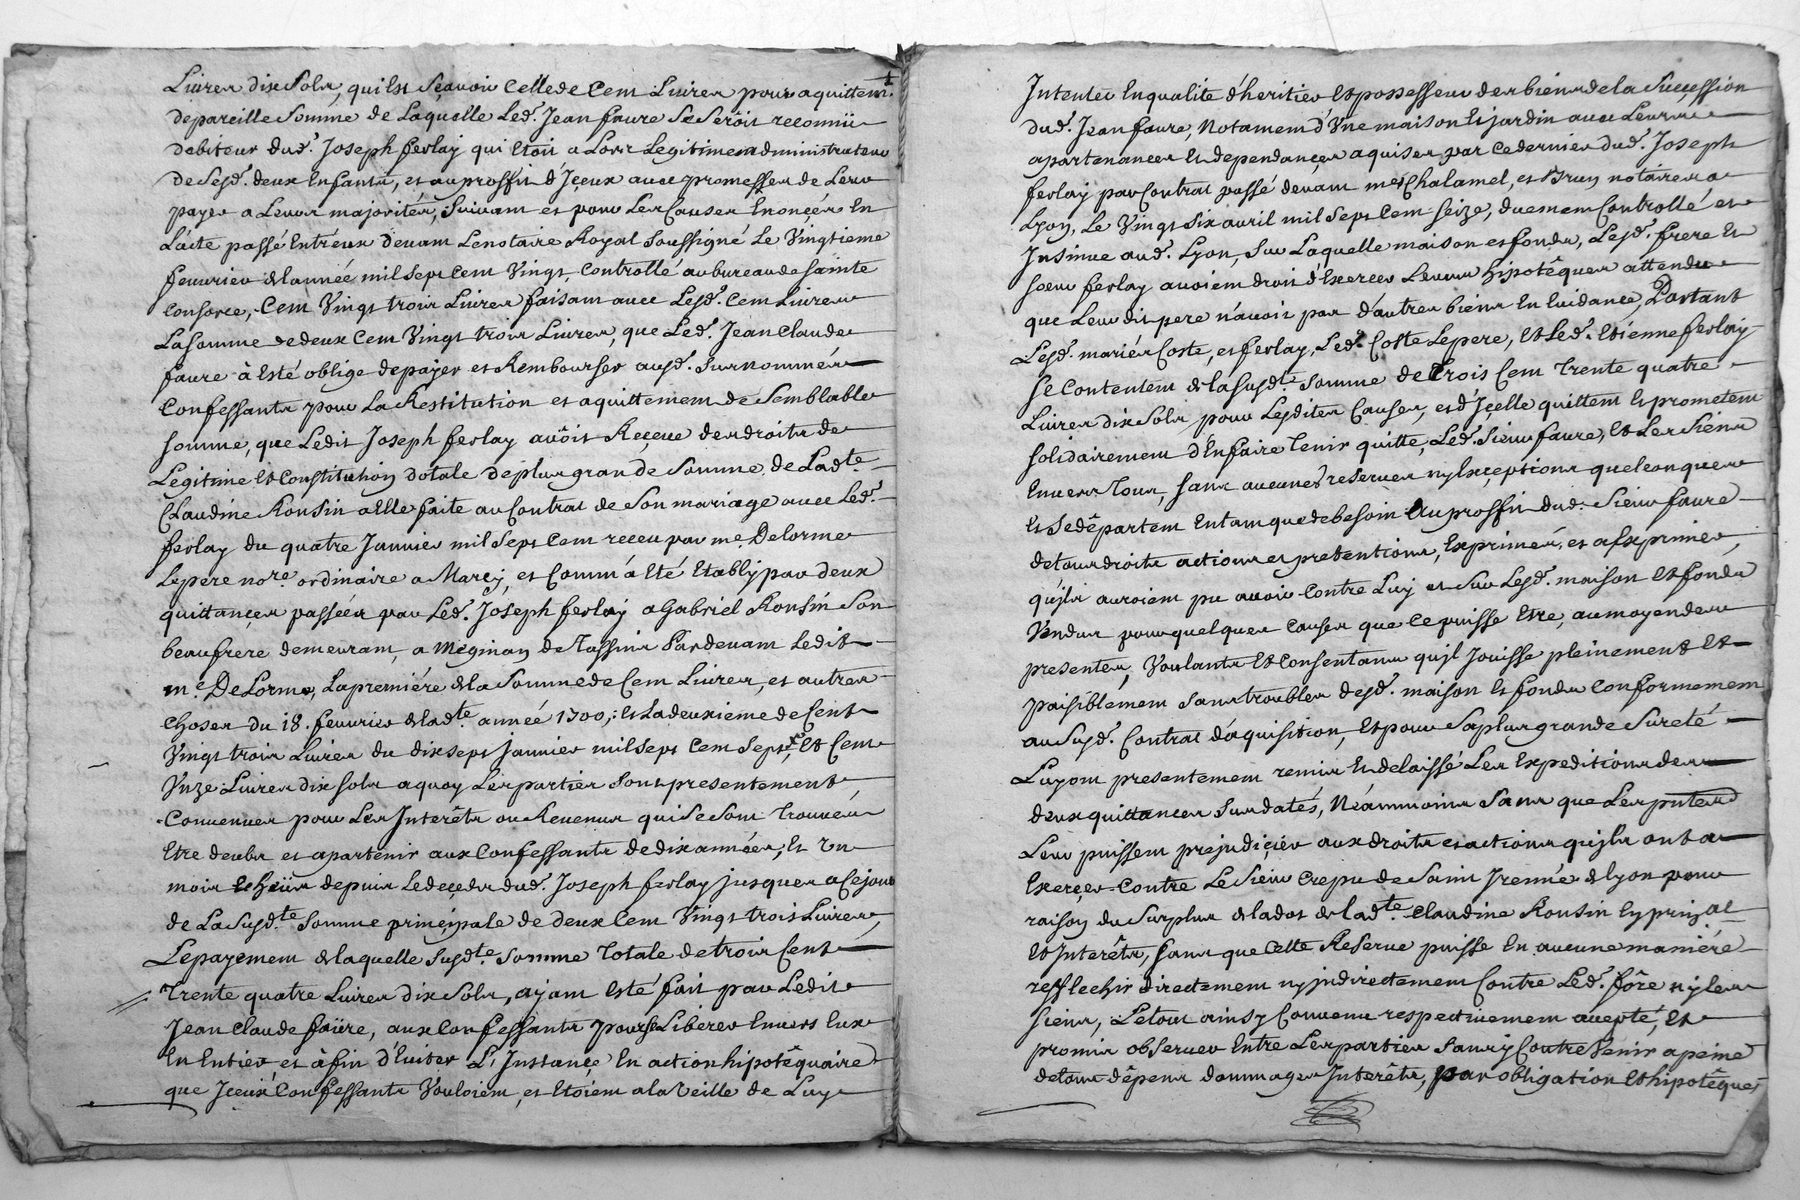 Livres dix Sols, qui est Sçavoir Celle de Cent Livres pour aquittemt.
de pareille Somme de Laquelle Led. Jean faure Se Serôit reconnü
debiteur dud. Joseph ferlay qui Etoit a Lors Legitime administrateur
de Sesd. deux Enfants, et au proffit d'Iceux avec promesses de Leur
payer a Leurs majorités, Suivant et pour Les Causes Enoncés En
L'acte passé Entréux devant Le notaire Royal Soussigné Le Vingtieme
fevrier de L'année mil Sept Cent Vingt, Controllé au bureau de Sainte
Consorce, Cent Vingt trois Livres faisant avec Lesd. Cent Livres
La Somme de deux Cent Vingt trois Livres, que Led. Jean Claude
faure à Esté obligé de payer et Rembourser ausd. Surnommés
Confessants pour La Restitution et aquittement de Semblable
Somme, que Ledit Joseph ferlay avôit Reçeue des droits de
Légitime et Constitution dotale de plus grande Somme de Ladte.
Claudine Ronsin a Elle faite au Contrat de Son mariage avec Led.
ferlay du quatre Janvier mil Sept Cent receu par me. Delorme
Le pere nore. ordinaire a Marcy, et Comm'à Eté Etably par deux
quittances passées par Led. Joseph ferlay a Gabriel Ronsin Son
beaufrere demeurant a Méginay de Tassins Pardevant Ledit
me. DeLorme, La premiére de La Somme de Cent Livres, et autres
Choses du 18. fevrier de Ladte année 1700; et La deuxieme de Cent
Vingt trois Livres du dix Sept Janvier mil Sept Cent Sept, Et Cent
Unze Livres dix Sols a quoy Les parties Sont presentement
Convenues pour Les Interêts ou Revenus qui Se Sont Trouvés
Etre deubs et apartenir aux Confessants de dix années, Et un
mois Echeüs depuis Le decéds dud. Joseph ferlay jusques a Ce jour
de La Susdte. Somme principale de deux Cent Vingt trois Livres,
Le payement de laquelle Susdte. Somme Totale de trois Cent
Trente quatre Livres dix Sols, ayant Esté fait par Ledit
Jean Claude faüre, aux Confessants pour Se Liberer Envers Eux
En Entier, et à fin d'Eviter L'Instançe En action hipotêquaire
que Iceux Confessants Vouloient, et Etoient a la Veille de Luy
Intenter En qualité d'heritier et possesseur des biens de la Succession
dud. Jean faure, Notament d'Une maison Et jardin avec Leurs
apartenances Et dependançes aquises par Ce dernier dud. Joseph
ferlay par Contrat passé devant mes Chalamel, et Brun notaires a
Lyon, Le Vingt Six avril mil Sept Cent Seize, duement Controllé et
Insinue aud. Lyon, Sur Laquelle maison et fonds, Lesd. frere Et
Soeur ferlay avoient droit d'Exercer Leurs hipotêques attendu
que Leur dit pere n'avoit pas d'autres biens En Evidance, Partant
Lesd. mariés Coste, et ferlay, Led. Coste Le pere, Et Led. Etienne ferlay
Se Contentent de la Susdte. Somme de Trois Cent Trente quatre
Livres dix Sols pour Lesdites Causes, et d'Içelle quittent Et prometent
Solidairement d'En faire Tenir quitte, Led. Sieur faure, Et Les Siens
Envers Tous, Sans aucunes reserves ny Exçeptions quelconques
Et Se dêpartent En tant que de besoin Au proffit dud. Sieur faure
de tous droits actions et pretentions, Exprimés, et a Exprimer,
qu'ils auroient pu avoir Contre Luy et Sur Lesd. maison Et fonds
Vendus pour quelques Causes que Ce puisse Etre, au moyen des
presentes, Voulants Et Consentans qu'il Jouisse pleinement Et
paisiblement Sans troubles desd. maison Et fonds Conformement
au Susd. Contrat d'aquisition, Et pour Sa plus grande Sureté
Luy ont presentement remis Et delaissé Les Expeditions des
deux quittances Susdatés, Néammoins Sans que Les putes
Leur puissent préjudiçier aux droits et actions qu'ils ont a
Exerçer Contre Le Sieur Crepu de Saint Irenné de Lyon pour
raison du Surplus de la dot de ladte. Claudine Ronsin En prinçal
Et Interêts, Sans que Cette Reserve puisse En aucune maniére
refflechir directement ny indirectement Contre Led. fôre ny les
Siens, Le tout ainsy Convenu respectivement accepté, Et
promis observer Entre Les parties Sans y Contrevenir a peine
de tous dêpens dommages Interêts, par obligation Et hipotêques